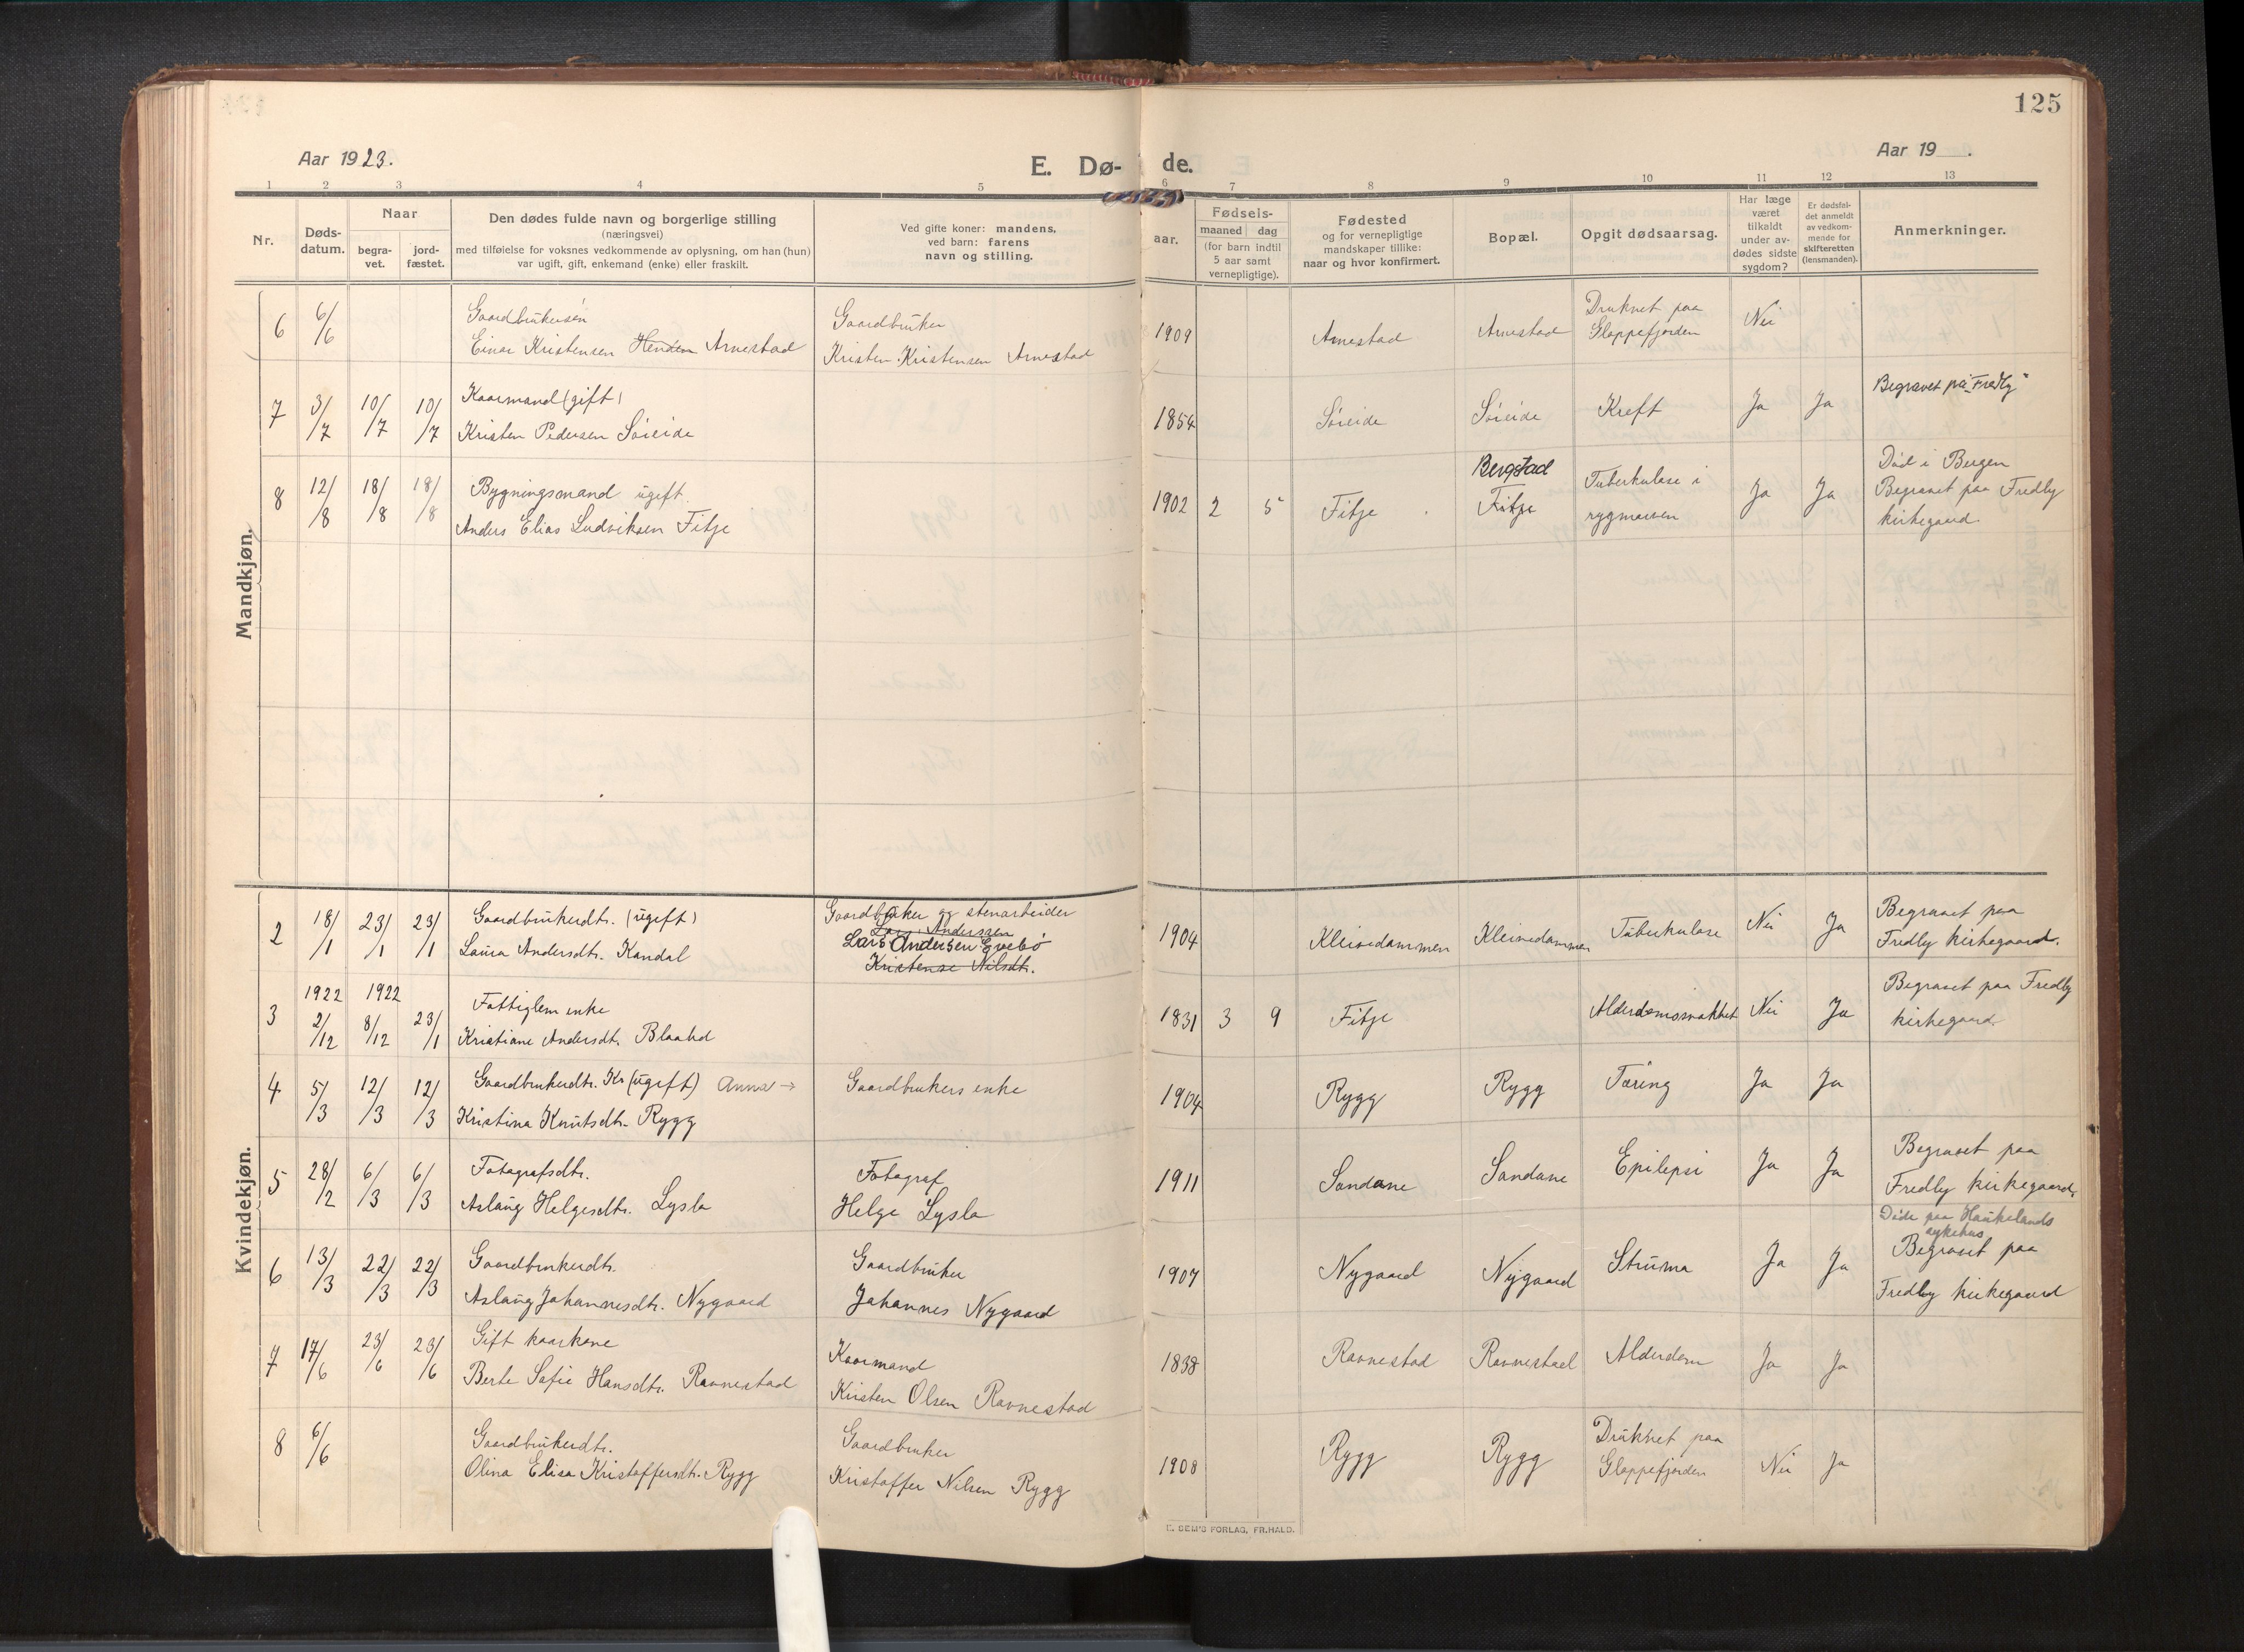 125
Aar 1923.
E. Dø- de.
Aar 19 .
1 2 3 4 5 6 7 8 9 10 11 12 13
Nr.
Døds-
datum.
Naar
begra-
vet.
jord-
fæstet.
Den dødes fulde navn og borgerlige stilling
(næringsvei)
med tilføielse for voksnes vedkommende av oplysning, om han (hun)
var ugift, gift, enkemand (enke) eller fraskilt.
Ved gifte koner: mandens,
ved barn: farens
navn og stilling.
Fødsels-
aar.
maaned dag
(for barn indtil
5 aar samt
vernepligtige).
Fødested
og for vernepligtige
mandskaper tillike:
naar og hvor konfirmert.
Bopæl.
Opgit dødsaarsag.
Har læge
været
tilkaldt
under av-
dødes sidste
sygdom?
Er dødsfal-
det anmeldt
av vedkom-
mende for
skifteretten
(lensmanden).
Anmerkninger.
Mandkjøn.
6 6/6
Gaardbrukersøn
Einar Kristensen Henden Arnestad
Gaardbruker
Kristen Kristensen Arnestad
1909 Arnestad Arnestad
Druknet paa
Gloppefjorden
Nei
7 3/7 10/7 10/7
Kaarmand (gift)
Kristen Pedersen Søreide
1854 Søreide Søreide Kreft Ja Ja
Begravet på "Fredly"
8 12/8 18/8 18/8
Bygningsmand ugift.
Anders Elias Ludviksen Fitje
1902 2 5 Fitje
Bergstad
Fitje
Tuberkulose i
rygmarven
Ja Ja
Død i Bergen
Begravet paa Fredly
kirkegaard.
Kvindekjøn.
2 18/1 23/1 23/1
Gaardbrukerdtr. (ugift)
Laura Andersdtr. Kandal
Gaardbruker og stenarbeider
Lars Anderssen
Lars Andersen Evebø
Kristense Nilsdtr.
1904 Kleivedammen Kleivedammen Tuberkulose Nei Ja
Begravet paa
Fredly kirkegaard.
3 1922 2/12 1922 8/12 23/1
Fattiglem enke
Kristiane Andersdt. Blaahd
1831 3 9 Fitje Alderdomssvakhet Nei Ja
Begravet paa Fredly
kirkegaard.
4 5/3 12/3 12/3
Gaardbrukerdtr. Kr (ugift) Anna →
Kristina Knutsdtr. Rygg
Gaardbrukers enke
1904 Rygg Rygg Tæring Ja Ja
5 28/2 6/3 6/3
Fotografsdtr.
Aslaug Helgesdtr. Lysla
Fotograf
Helge Lysla
1911 Sandane Sandane Epilepsi Ja Ja
Begravet paa
Fredly kirkegaard.
6 13/3 22/3 22/3
Gaardbrukerdtr.
Aslaug Johannesdtr. Nygaard
Gaardbruker
Johannes Nygaard
1907 Nygaard Nygaard Struma Ja Ja
Døde paa Haukelands
sykehus
Begravet paa
Fredly kirkegaard
7 17/6 23/6 23/6
Gift kaarkone
Berte Sofie Hansdtr. Ravnestad
Kaarmand
Kristen Olsen Ravnestad
1838 Ravnestad Ravnestad Alderdom Ja Ja
8 6/6
Gaardbrukerdtr.
Olina Elisa Kristoffersdtr. Rygg
Gaardbruker
Kristoffer Nilsen Rygg
1908 Rygg Rygg
Druknet paa
Gloppefjorden
Nei Ja
E. SEM'S FORLAG, FR.HALD.